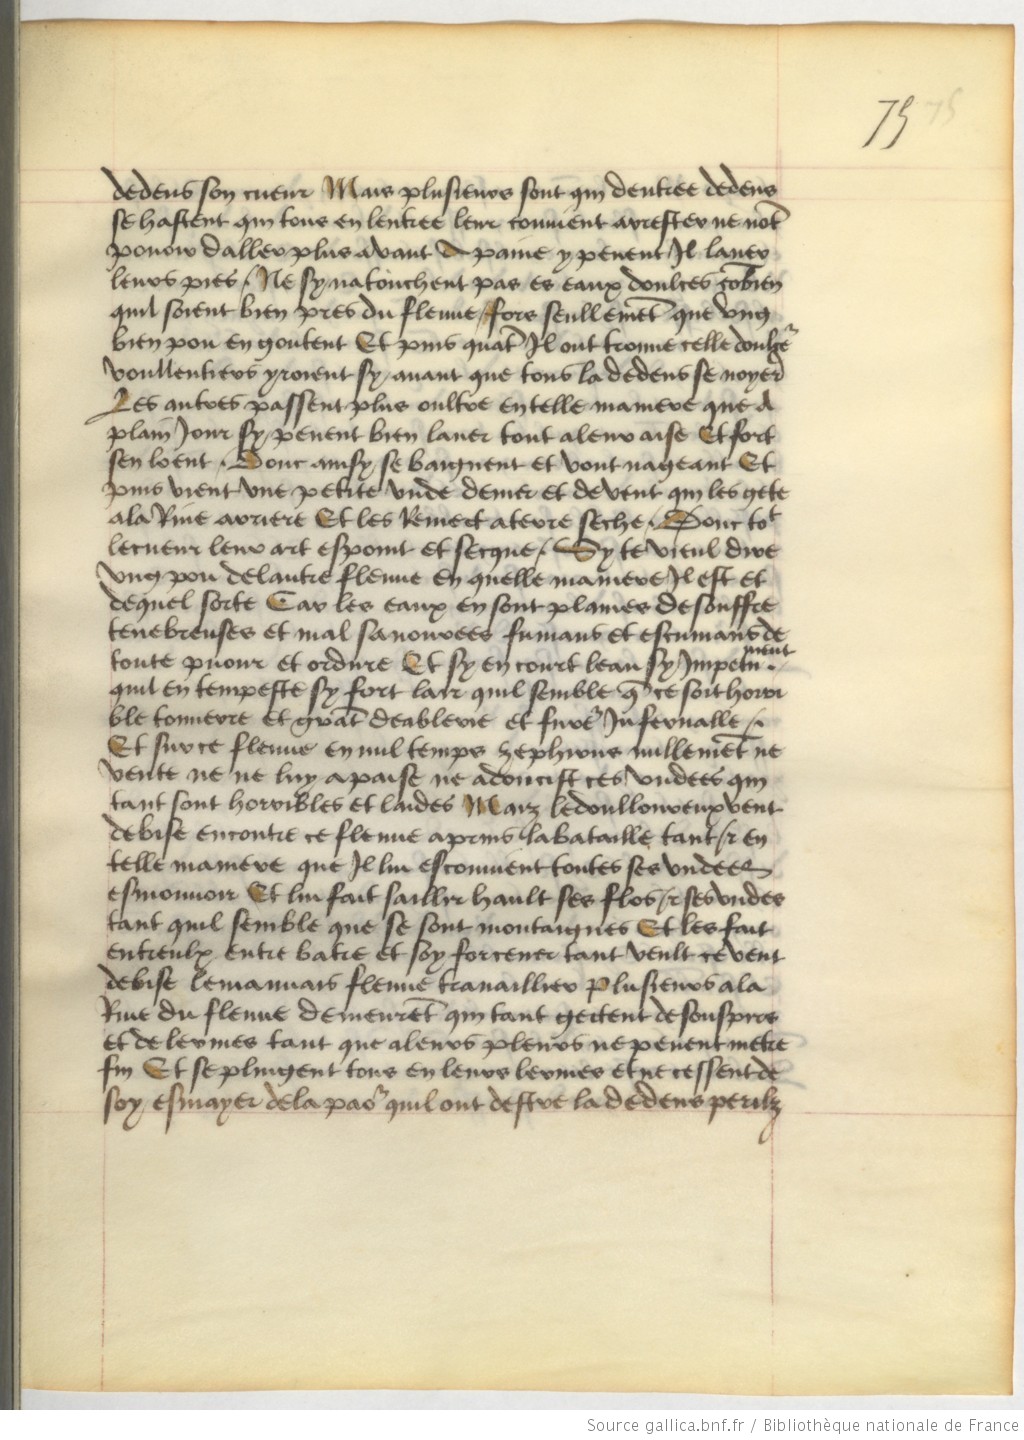 75 75
dedens son cueur Mais plusieurs sont qui dentree dedens
se hastent qui tous en lentree leur conuient arrester ne nōt
pouoir daller plus auant A paine y peuent Il lauer
leurs pies / Ne sy natouchent pas es eaux doulces cōbien
quil soient bien pres du fleuue / fors seullemēt que vng
bien pou en goutent Et puis quāt Il ont trouue celle doulce᷑
voullentiers yroient sy auant que tous la dedens se noyer̄
Les autres passent plus oultre en telle maniere que A
plain Jour sy peuent bien lauer tout a leur aise Et fort
sen loent . Donc ainsy se baignent et vont nageant Et
puis vient vne petite vnde de mer et de vent qui les gete
a la Riue arriere Et les Remect a terre seche . Donc tot
le cueur leur art espoint et secque / Sy te vieul dire
vng pou de lautre fleuue en quelle maniere Il est et
de quel sorte Car les eaux en sont plaines de souffre
tenebreuses et mal sauourees fumans et escumans de
toute puour et ordure Et sy en court leau sy Impetueu .
ment
quil en tempeste sy fort lair quil semble q̄ ce soit horri
ble tonnerre et grāt deablerie et fure᷑ Infernalle /
Et sur ce fleuue en nul temps zephirus nullemēt ne
vente ne ne luy apaise ne adoucist ces vndees qui
tant sont horribles et laides Maiz le doulloureux vent
de bise encontre ce fleuue a prins la bataille tant / et en
telle maniere que Il lui esconuient toutes ses vndees
esmouuoir Et lui fait saillir hault ses flos / et ses vndes
tant quil semble que se sont montaignes Et les fait
entreulx entre batre et soy forcener tant veult ce vent
de bise le mauuais fleuue trauaillier Plusieurs a la
Riue du fleuue demeurēt qui tant gectent de souspirs
et de lermes tant que a leurs pleurs ne peuent metre
fin Et se plungent tous en leurs lermes et ne cessent de
soy esmayer de la pao᷑ quil ont destre la dedens perilz
Source gallica.bnf.fr / Bibliothèque nationale de France